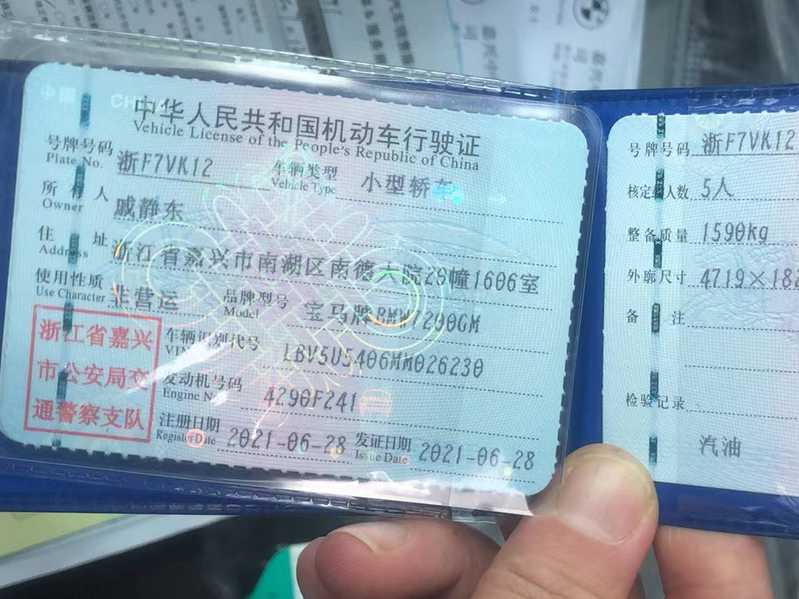 中华人民共和国机动车行驶证
Vehicle License of the People's Republic of China
号牌号码 浙F7VK12 车辆类型 小型轿车
Plate No. Vehicle Type
所有人 戚静东
Owner
住址 浙江省嘉兴市南湖区南德大院29幢1606室
Address
使用性质 非营运 品牌型号 宝马牌BMW7200GM
Use Character Model
浙江省嘉兴
市公安局交
通警察支队
车辆识别代号 LBV5U5406MM026230
VIN
发动机号码 4290F241
Engine No.
注册日期 2021-06-28 发证日期 2021-06-28
Register Date Issue Date
号牌号码 浙F7VK12
核定载人数 5人
整备质量 1590kg
外廓尺寸 4719×182
备注
检验记录
汽油